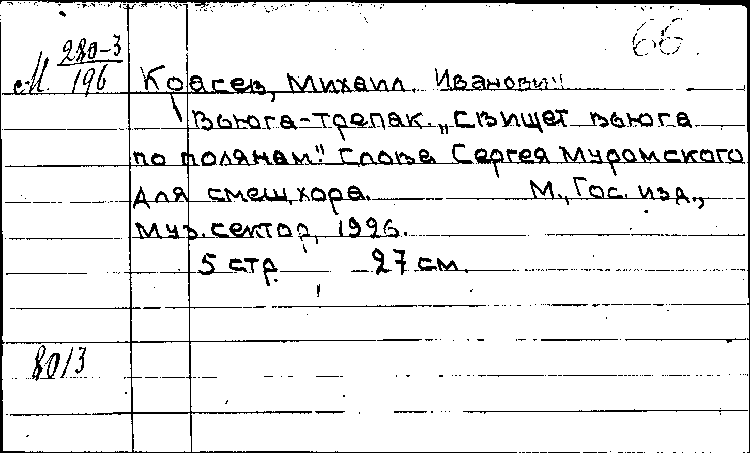 66
М 280-3/196
Красев, Михаил Иванович
Вьюга-трепак. „Свищет вьюга
по полянам". Слова Сергея Муромского
Для смеш, хора. М., Гос. изд.,
Муз. сектор, 1926.
5 стр. 27 см.
8013